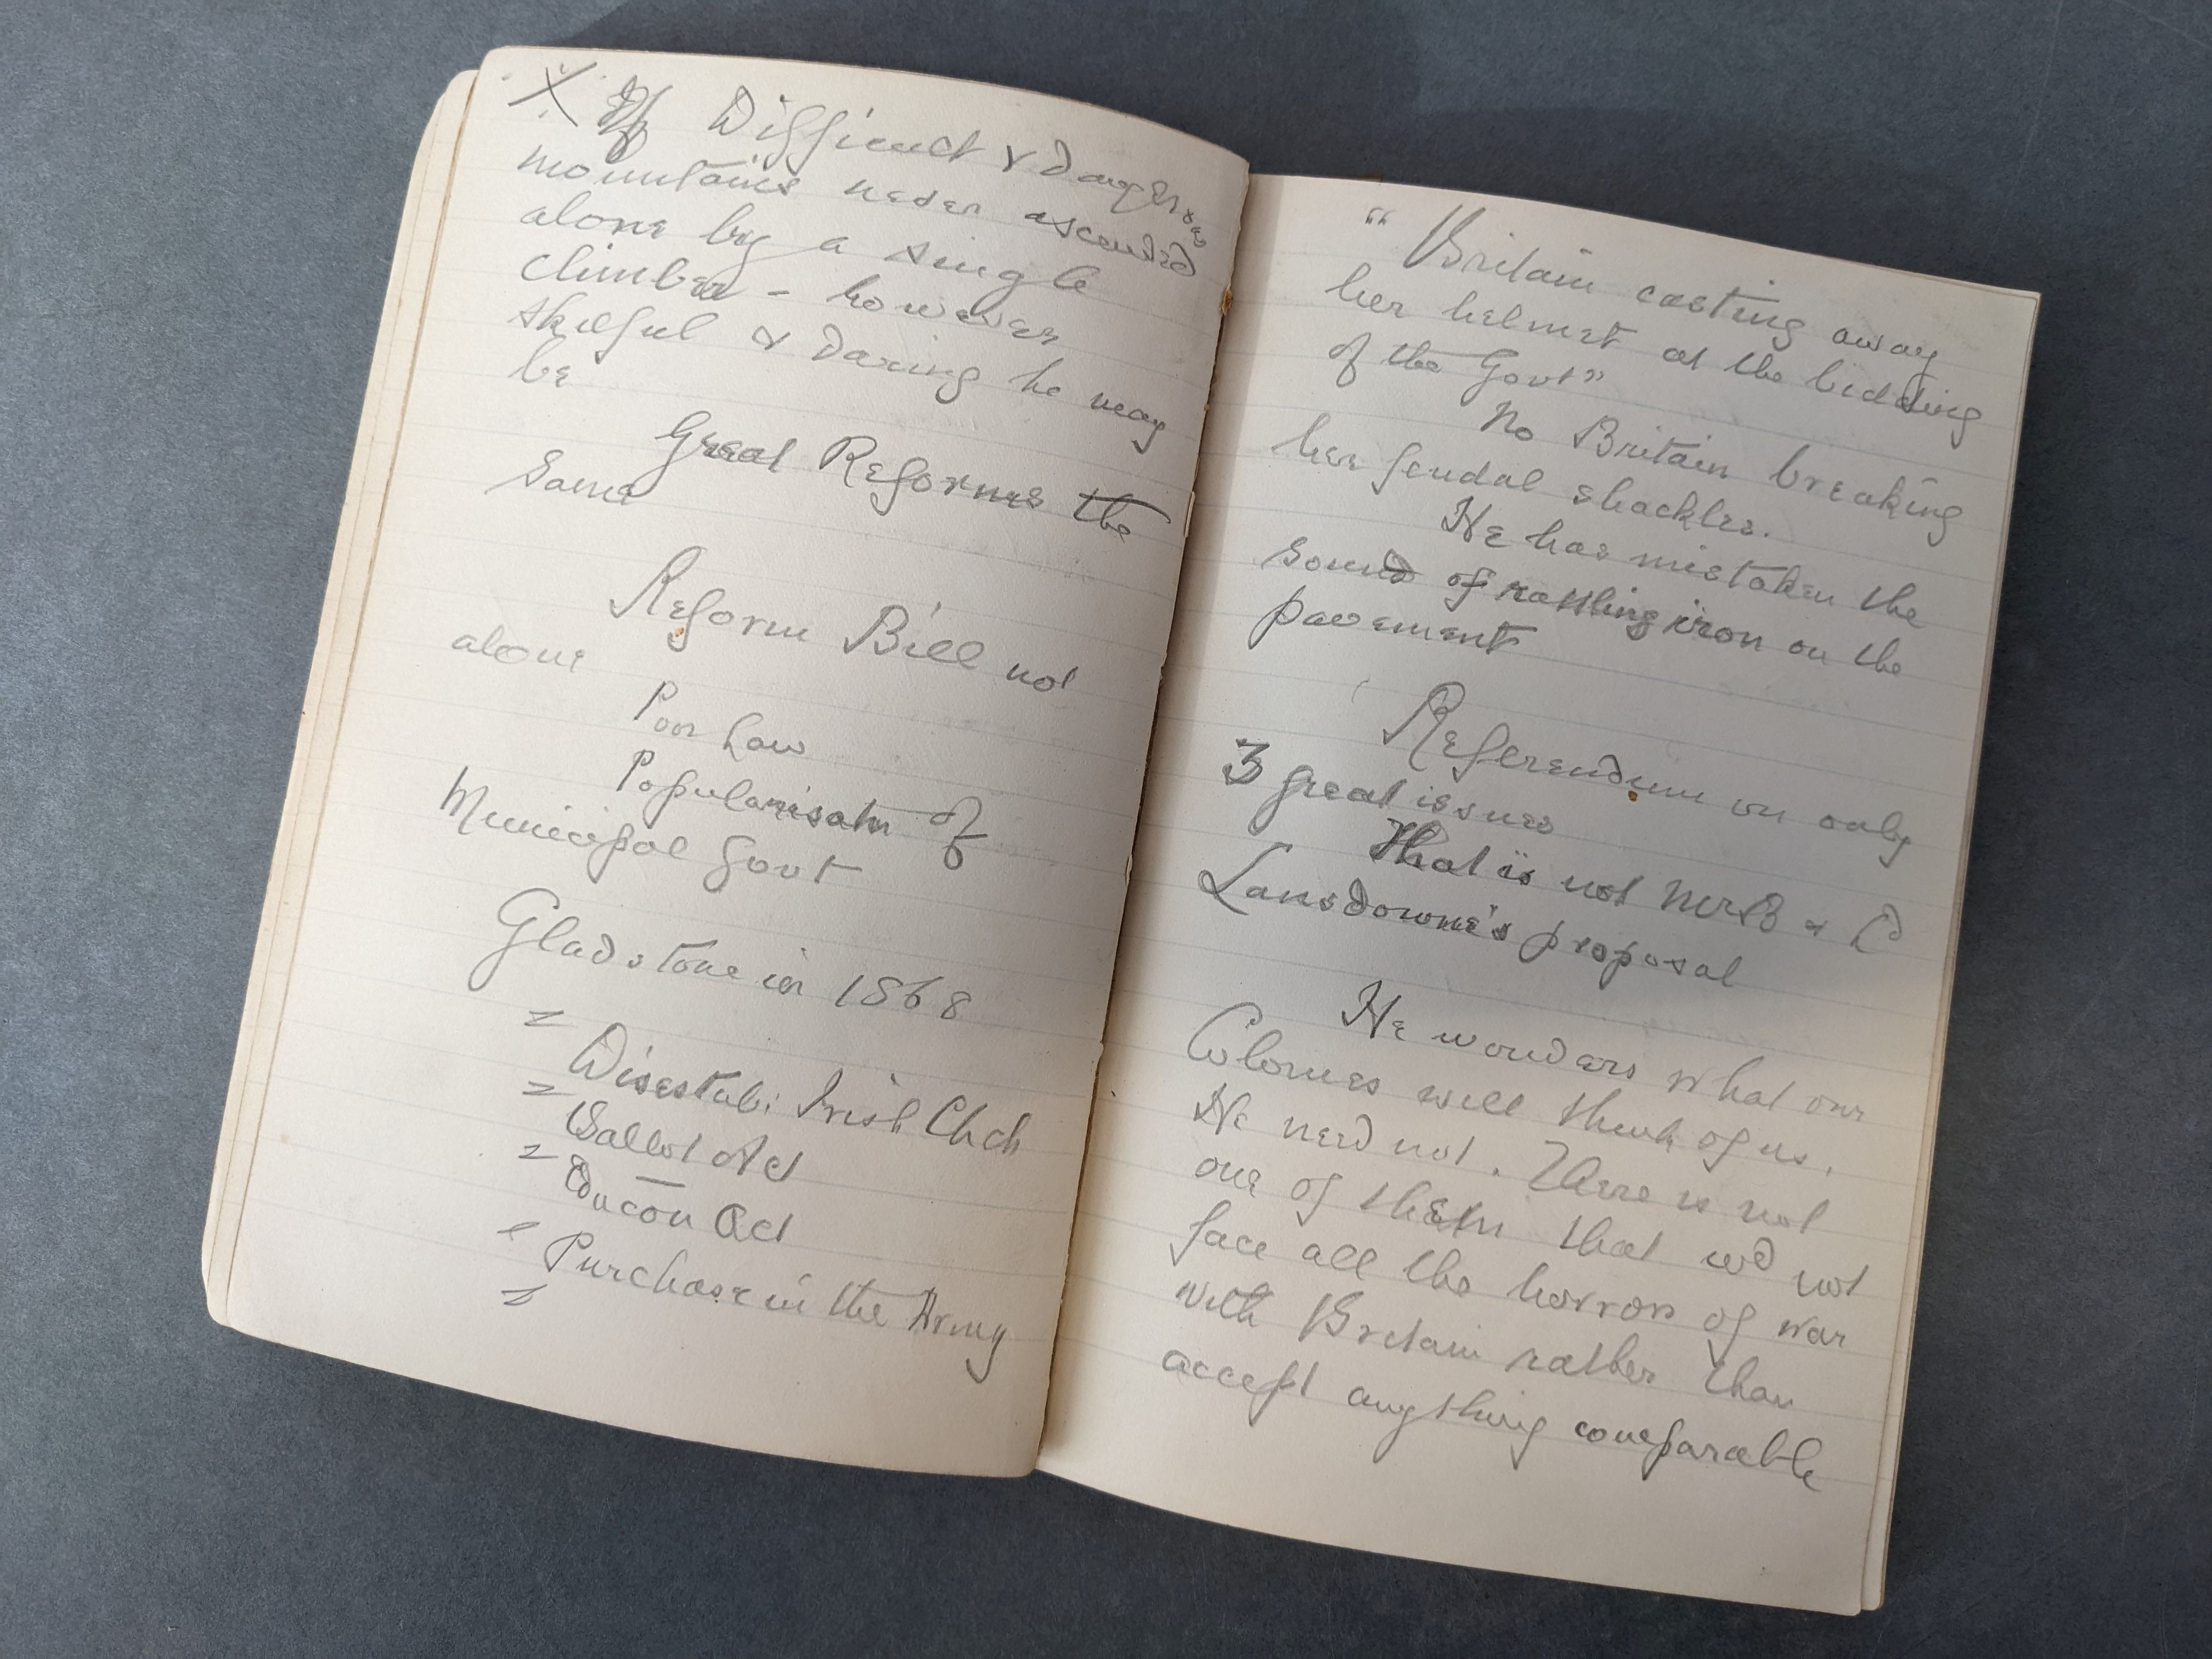 X If Difficult & Dangerous
mountains never ascended
alone by a single
climber - however
skilful & daring he may
be
Great Reforms the
same
Reform Bill not
alone
Poor Law
Popularisatn of
Municipal Govt
Gladstone in 1868
=
Disestab: Irish Chch
=
Ballot Act
=
Educon Act
=
Purchase in the Army
=
"Britain casting away
her helmet at the bidding
of the Govt"
No Britain breaking
her feudal shackles.
He has mistaken the
sound of rattling iron on the
pavement
Referendum on only
3 great issues
That is not Mr B & Ld
Lansdowne's proposal
He wonders what our
Colonies will think of us.
He need not. There is not
one of them that wd not
face all the horrors of war
with Britain rather than
accept anything comparable